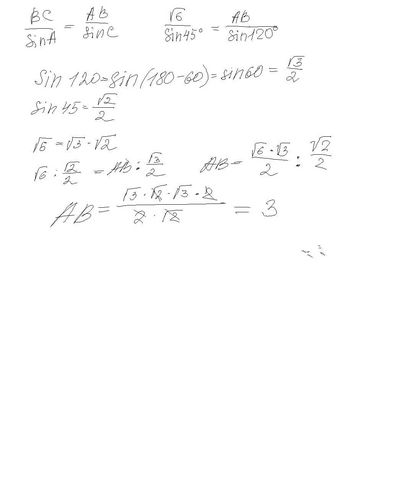 BC/sinA = AB/sinC √6/sin45° = AB/sin120°
Sin 120 = sin(180-60) = sin60 = √3/2
sin 45 = √2/2
√6 = √3 · √2
√6 : √2/2 = AB : √3/2 AB = √6 · √3/2 : √2/2
AB = √3 · √2 · √3 · 2/2 · √2 = 3